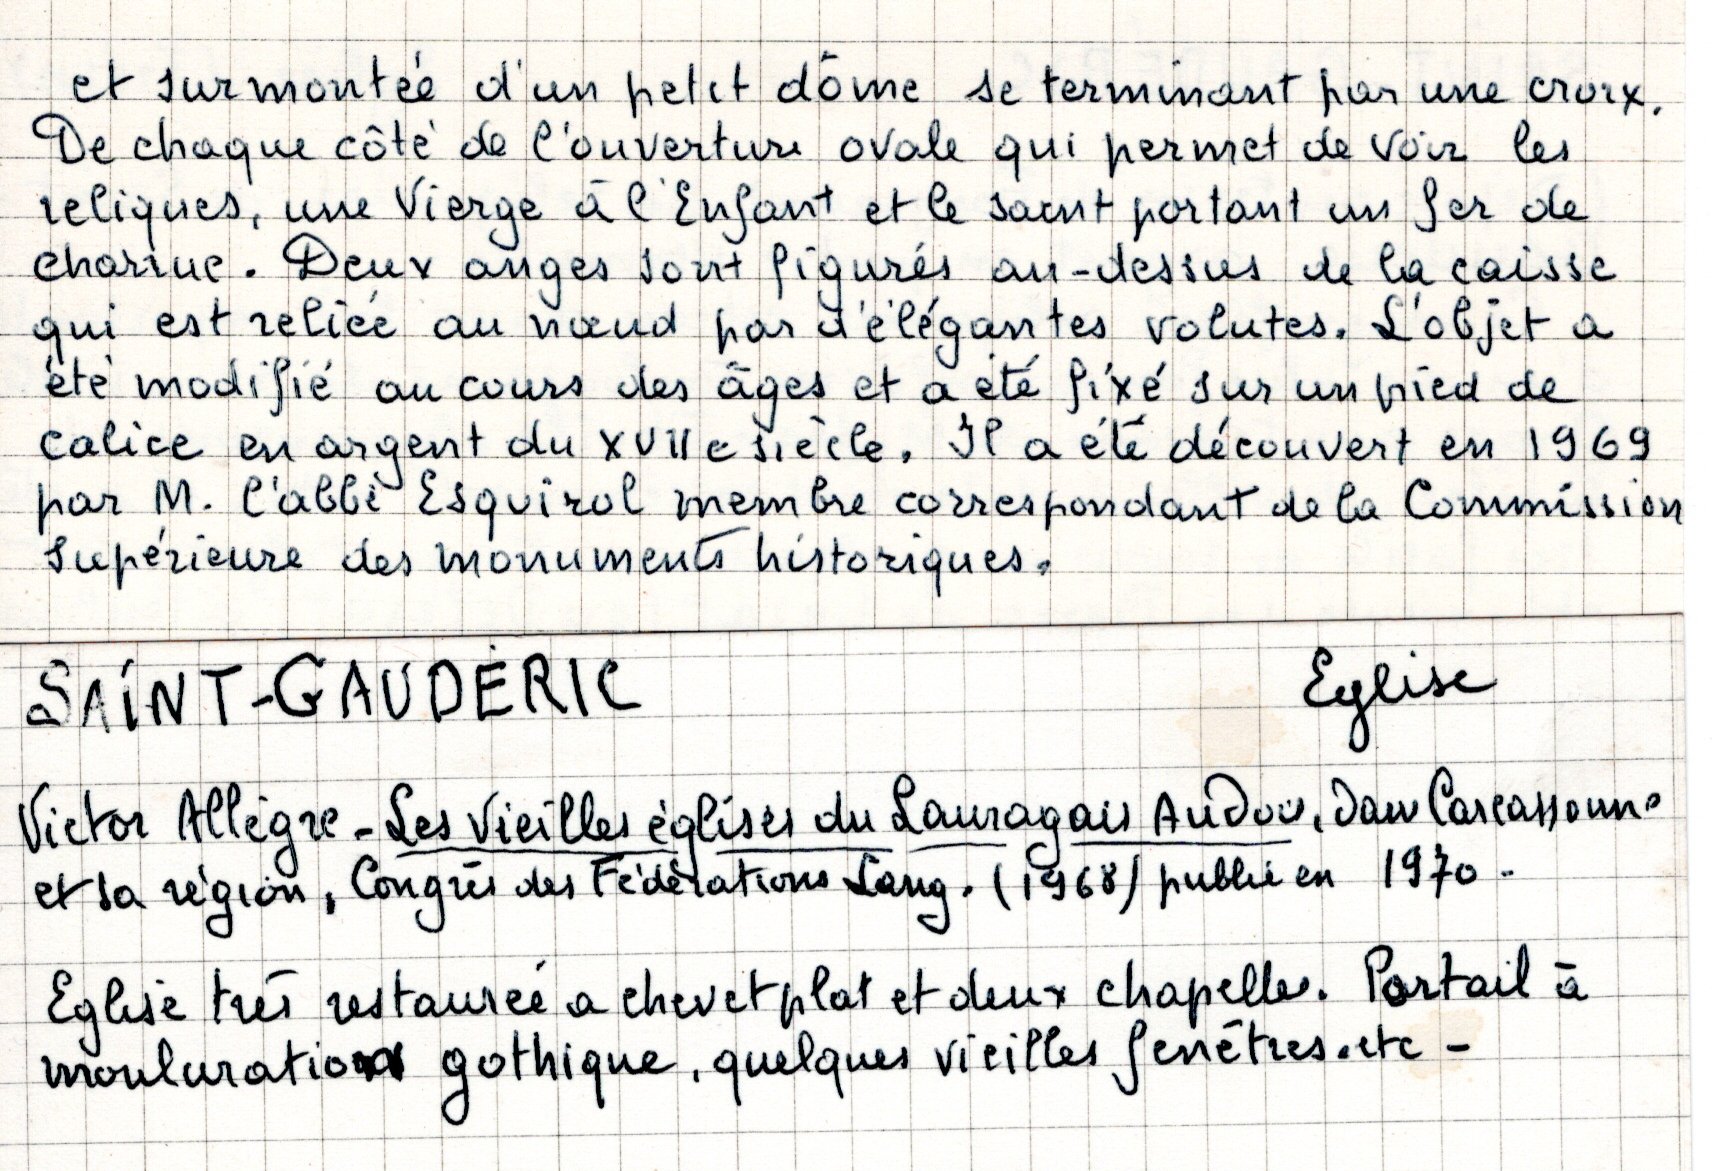 et surmontée d'un petit dôme se terminant par une croix.
De chaque côté de l'ouverture ovale qui permet de voir les
reliques, une Vierge à l'Enfant et le saint portant un fer de
charrue. Deux anges sont figurés au-dessus de la caisse
qui est reliée au nœud par d'élégantes volutes. L'objet a
été modifié au cours des âges et a été fixé sur un pied de
calice en argent du XVIIe siècle. Il a été découvert en 1969
par M. l'abbé Esquirol membre correspondant de la Commission
supérieure des monuments historiques.
SAINT-GAUDÉRIC Eglise
Victor Allègre - Les vieilles églises du Lauragais Audois, dans Carcassonne
et sa région, Congrès des Fédérations Lang. (1968) publié en 1970 -
Eglise très restaurée a chevet plat et deux chapelles. Portail à
mouluration gothique, quelques vieilles fenêtres. etc -